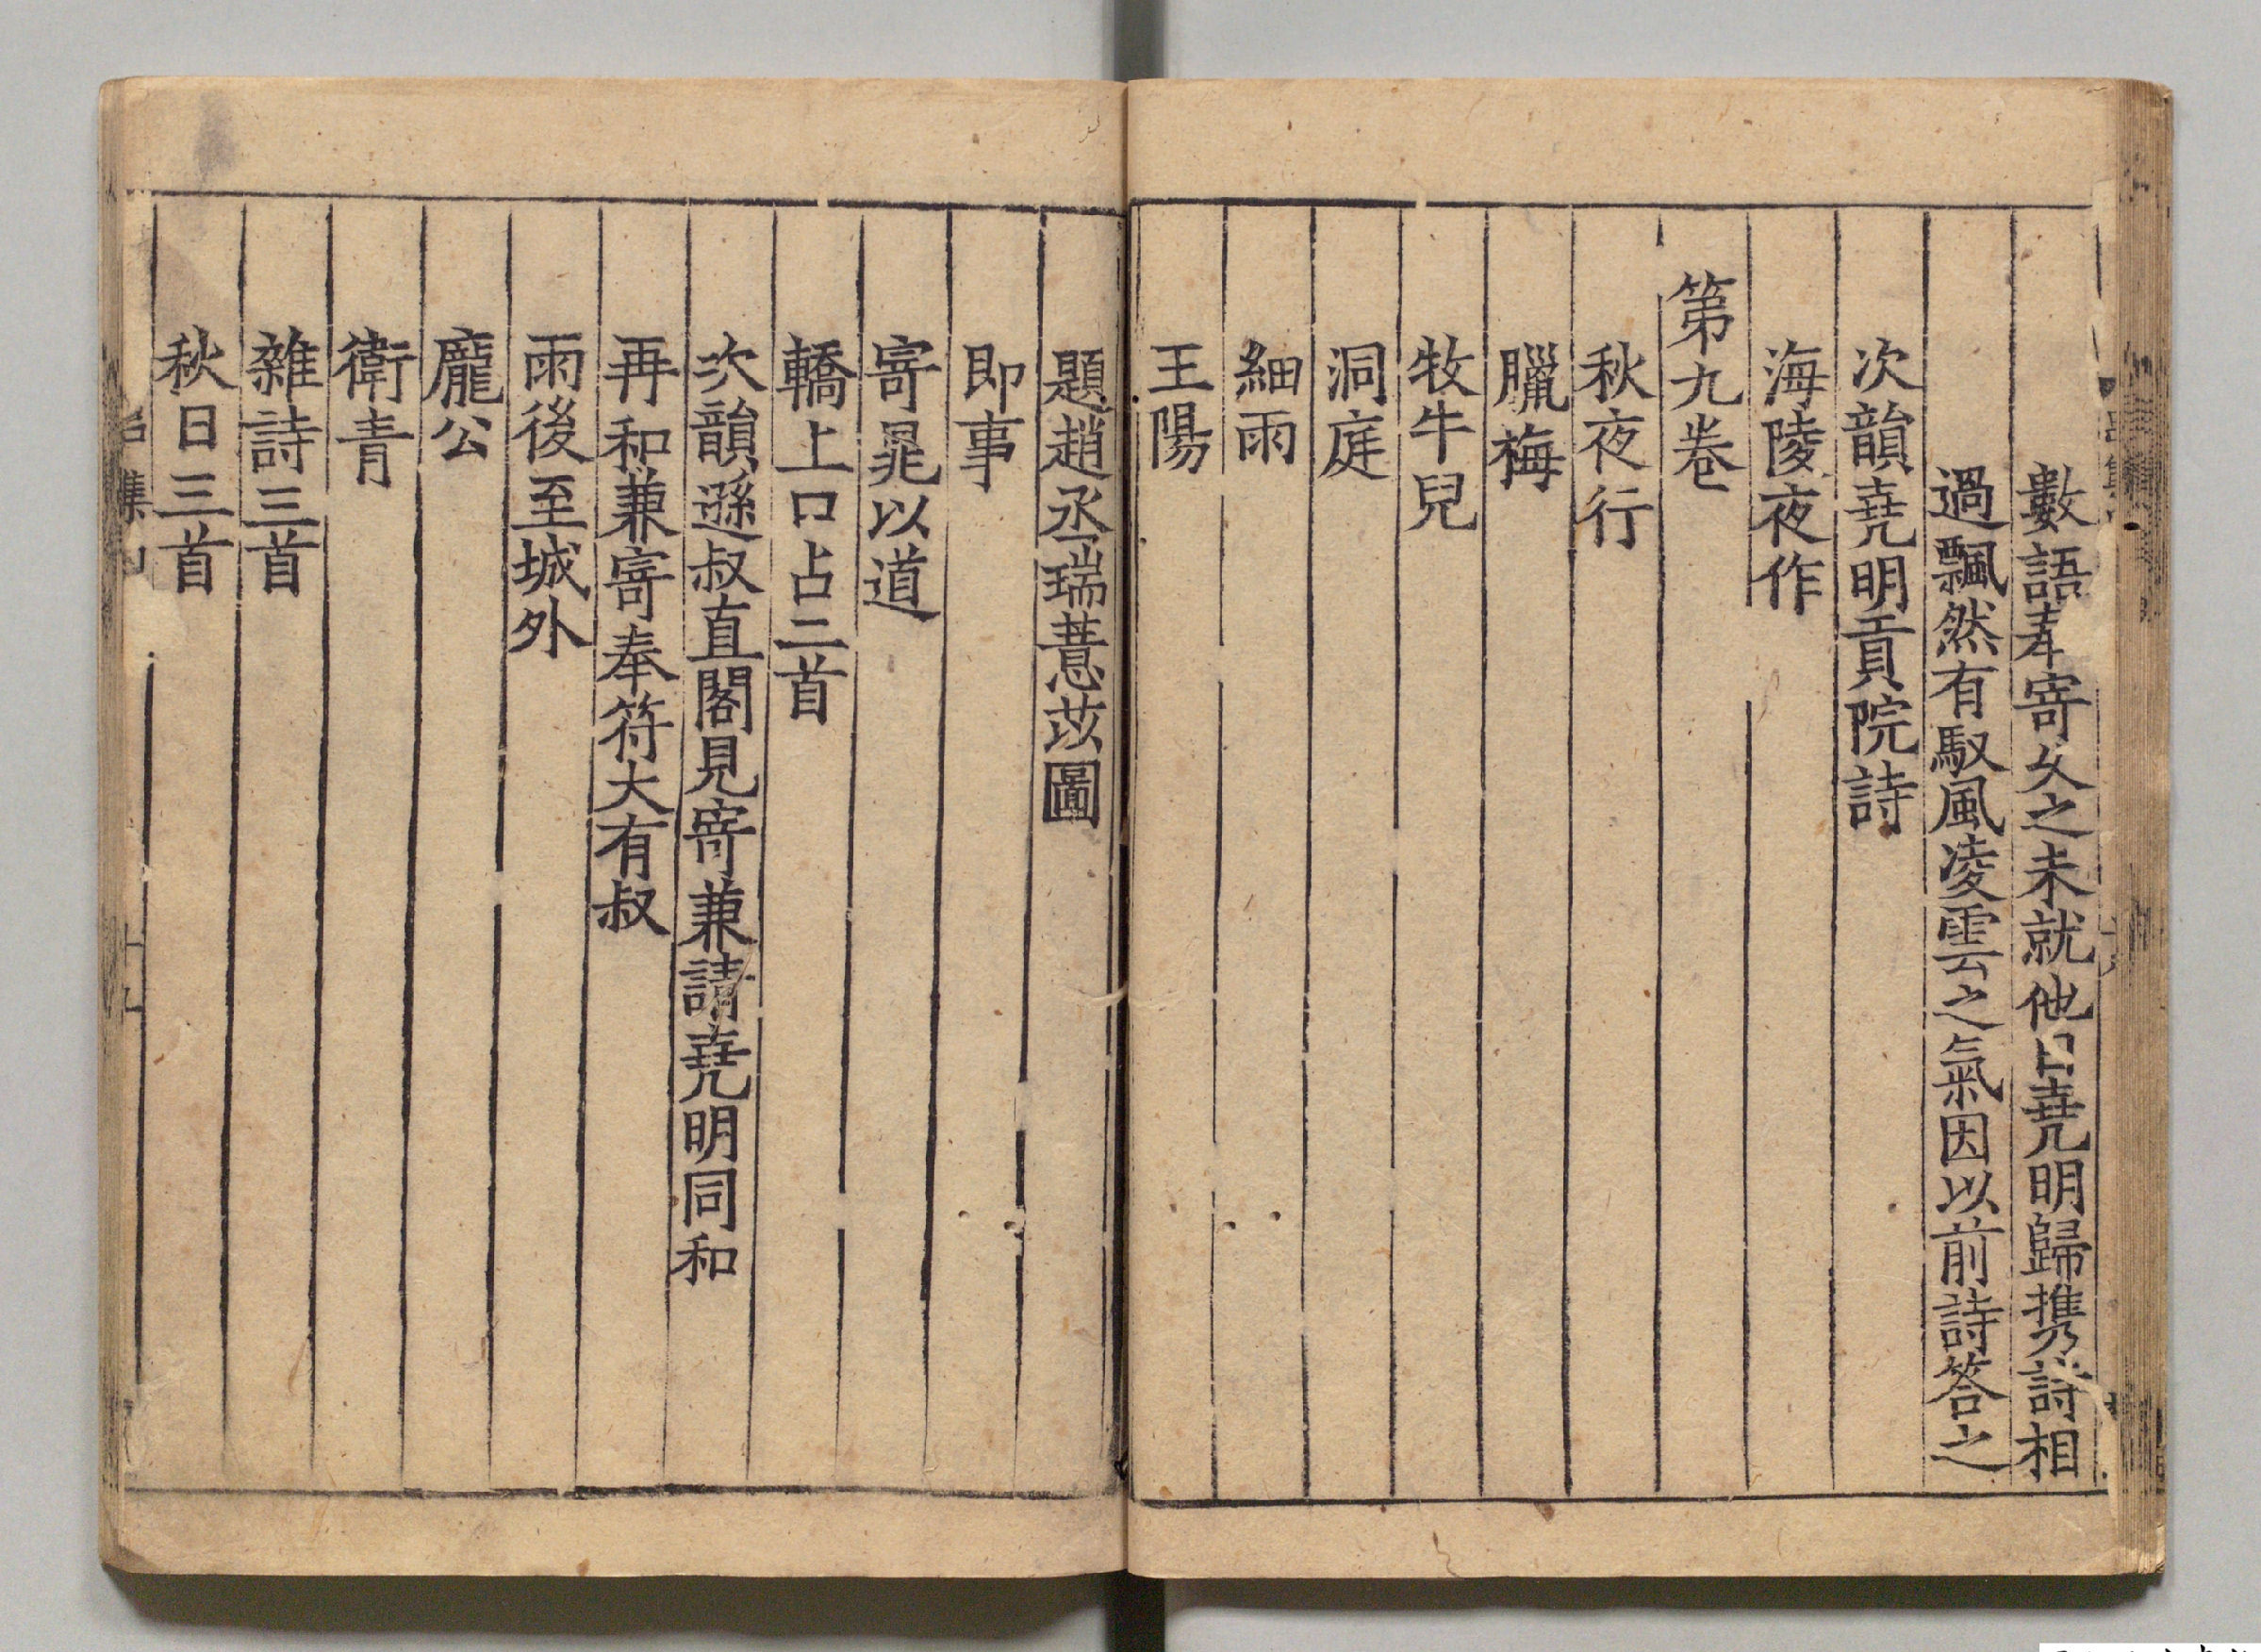 數語奉寄久之未就他日堯明歸携詩相
過飄然有馭風凌雲之氣因以前詩答之
次韻堯明貢院詩
海陵夜作
第九卷
秋夜行
臘梅
牧牛兒
洞庭
細雨
王陽
題趙丞瑞薏苡圖
即事
寄晁以道
轎上口占二首
次韻遜叔直閣見寄兼請堯明同和
再和兼寄奉符大有叔
雨後至城外
龐公
衛青
雜詩三首
秋日三首